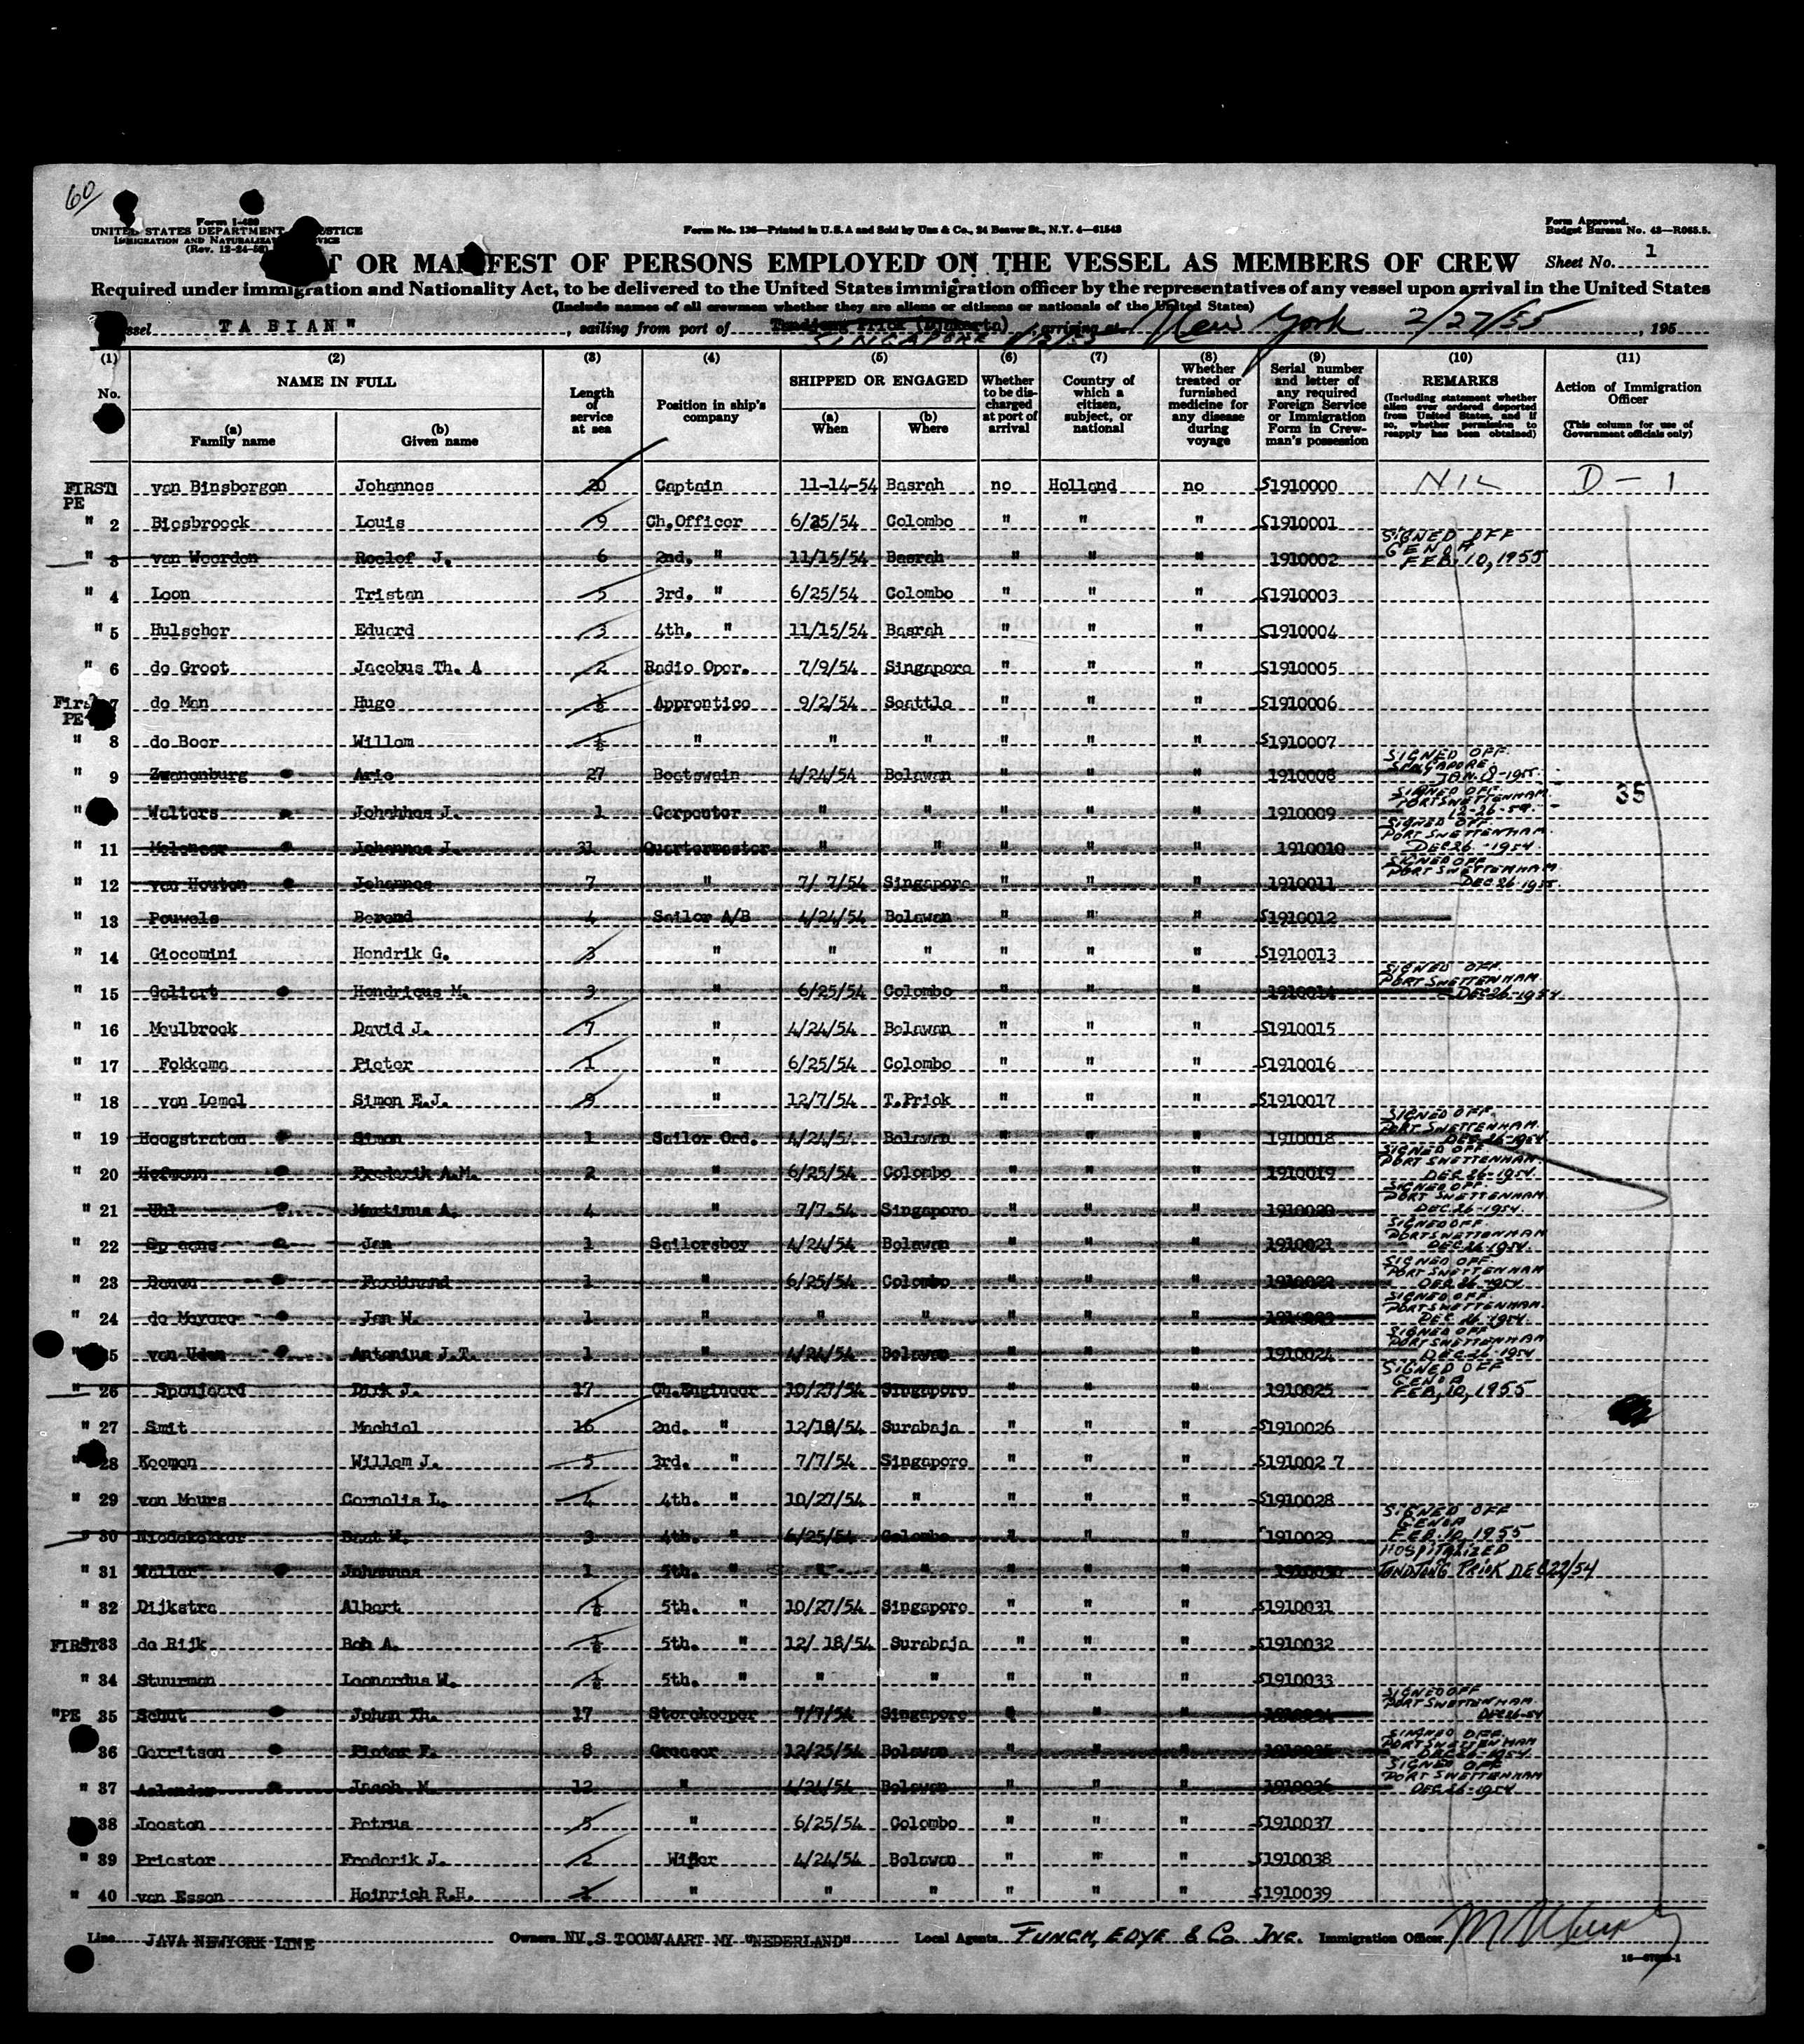 60
Form I-489
UNITED STATES DEPARTMENT JUSTICE
IMMIGRATION AND NATURALIZATION SERVICE
(Rev. 12-24-52)
Form No. 136—Printed in U.S.A and Sold by Unz & Co., 24 Beaver St., N.Y. 4—61543
Form Approved.
Budget Bureau No. 43—R065.5.
T OR MANIFEST OF PERSONS EMPLOYED ON THE VESSEL AS MEMBERS OF CREW
Sheet No. 1
Required under immigration and Nationality Act, to be delivered to the United States immigration officer by the representatives of any vessel upon arrival in the United States
(Include names of all crewmen whether they are aliens or citizens or nationals of the United States)
ssel TABIAN", sailing from port of Tandjong Priok (Djakarta) SINGAPORE, arriving at New York 2/27/55, 195
(1) (2) (3) (4) (5) (6) (7) (8) (9) (10) (11)
No.
NAME IN FULL
(a) Family name
(b) Given name
Length of service at sea
Position in ship's company
SHIPPED OR ENGAGED
(a) When
(b) Where
Whether to be discharged at port of arrival
Country of which a citizen, subject, or national
Whether treated or furnished medicine for any disease during voyage
Serial number and letter of any required Foreign Service or Immigration Form in Crewman's possession
REMARKS
(Including statement whether alien ever ordered deported from United States, and if so, whether permission to reapply has been obtained)
Action of Immigration Officer
(This column for use of Government officials only)
FIRST PE 1 van Binsbergen Johannes 20 Captain 11-14-54 Basrah no Holland no S1910000 NIL D-1
" 2 Biesbroeck Louis 9 Ch.Officer 6/25/54 Colombo " " " S1910001
" 3 van Woerden Roelof J. 6 2nd. " 11/15/54 Basrah " " " 1910002 SIGNED OFF GENOA FEB. 10, 1955
" 4 Loon Tristan 5 3rd. " 6/25/54 Colombo " " " S1910003
" 5 Hulscher Eduard 3 4th. " 11/15/54 Basrah " " " S1910004
" 6 de Groot Jacobus Th. A 2 Radio Oper. 7/9/54 Singapore " " " S1910005
First PE 7 de Man Hugo ½ Apprentice 9/2/54 Seattle " " " S1910006
" 8 de Boer Willem ½ " " " " " " S1910007
" 9 Zwanenburg Arie 27 Boatswain 4/24/54 Belawan " " " 1910008 SIGNED OFF. SINGAPORE. JAN. 8-1955.
" Walters Johahhes J. 1 Carpenter " " " " " 1910009 SIGNED OFF. PORT SWETTENHAM. 12-26-54.
35
" 11 Johannes J. 31 Quartermaster " " " " " 1910010 SIGNED OFF. PORT SWETTENHAM. DEC 26-1954.
" 12 van Houten Johannes 7 " 7/7/54 Singapore " " " 1910011 SIGNED OFF PORT SWETTENHAM DEC 26-1955.
" 13 Pouwels Berend 4 Sailor A/B 4/24/54 Belawan " " " S1910012
" 14 Giocomini Hendrik G. 3 " " " " " " S1910013
" 15 Galiart Hendricus M. 3 " 6/25/54 Colombo " " " 1910014 SIGNED OFF. PORT SWETTENHAM. DEC 26-1954.
" 16 Meulbroek David J. 7 " 4/24/54 Belawan " " " S1910015
" 17 Fokkema Pieter 1 " 6/25/54 Colombo " " " S1910016
" 18 van Lemel Simon E.J. 9 " 12/7/54 T.Priok " " " S1910017
" 19 Hoogstraten Simon 1 Sailor Ord. 4/24/54 Belawan " " " 1910018 SIGNED OFF. PORT SWETTENHAM. DEC 26-1954
" 20 Hofmann Frederik A.M. 2 " 6/25/54 Colombo " " " 1910019 SIGNED OFF. PORT SWETTENHAM. DEC 26-1954.
" 21 Uhl Martinus A. 4 " 7/7-54 Singapore " " " 1910020 SIGNED OFF. PORT SWETTENHAM. DEC 26-1954.
" 22 Sp aans Jan 1 Sailorsboy 4/24/54 Belawan " " " 1910021 SIGNED OFF. PORT SWETTENHAM DEC 26-1954.
" 23 Ferdinand 1 " 6/25/54 Colombo " " " 1910022 SIGNED OFF. PORT SWETTENHAM DEC 26-1954
" 24 de Meyere Jan W. 1 " " " " " " 1910023 SIGNED OFF. PORT SWETTENHAM. DEC 26-1954.
" 25 van Uden Antonius J.T. 1 " 4/24/54 Belawan " " " 1910024 SIGNED OFF PORT SWETTENHAM DEC 26-1954
" 26 Spanjaard Dirk J. 17 Ch.Engineer 10/27/54 Singapore " " " 1910025 SIGNED OFF GENOA FEB, 10, 1955
" 27 Smit Machiel 16 2nd. " 12/18/54 Surabaja " " " S1910026
28 Koomen Willem J. 5 3rd. " 7/7/54 Singapore " " " S191002 7
" 29 van Meurs Cornelis L. 4 4th. " 10/27/54 " " " " S1910028
" 30 Niedekekker Bent W. 3 4th. " 6/25/54 Colombo " " " 1910029 SIGNED OFF GENOA FEB. 10, 1955
" 31 Muller Johannes 1 5th. " " " " " " 1910030 HOSPITALIZED TANDJONG PRIOK DEC 22/54
" 32 Dijkstra Albert ½ 5th. " 10/27/54 Singapore " " " S1910031
FIRST 33 de Rijk Bob A. ½ 5th. " 12/ 18/54 Surabaja " " " S1910032
" 34 Stuurman Leonardus W. ½ 5th. " " " " " " S1910033
"PE 35 Schut Johan Th. 17 Storekeeper 7/7/54 Singapore " " " 1910034 SIGNED OFF PORT SWETTENHAM. DEC 26-54
36 Gerritsen Pieter F. 8 Greaser 12/25/54 Belawan " " " 1910035 SIGNED OFF. PORT SWETTENHAM DEC 26-1954
" 37 Aalander Jacob M. 12 " 4/24/54 Belawan " " " 1910036 SIGNED OFF PORT SWETTENHAM DEC 26-1954
38 Joosten Petrus 5 " 6/25/54 Colombo " " " S1910037
" 39 Priester Frederik J. 2 Wiper 4/24/54 Belawan " " " S1910038
" 40 van Essen Heinrich R.H. 1 " " " " " " S1910039
Line JAVA NEWYORK LINE Owners NV.S TOOMVAART MY "NEDERLAND" Local Agents FUNCH, EDYE & Co. INC. Immigration Officer